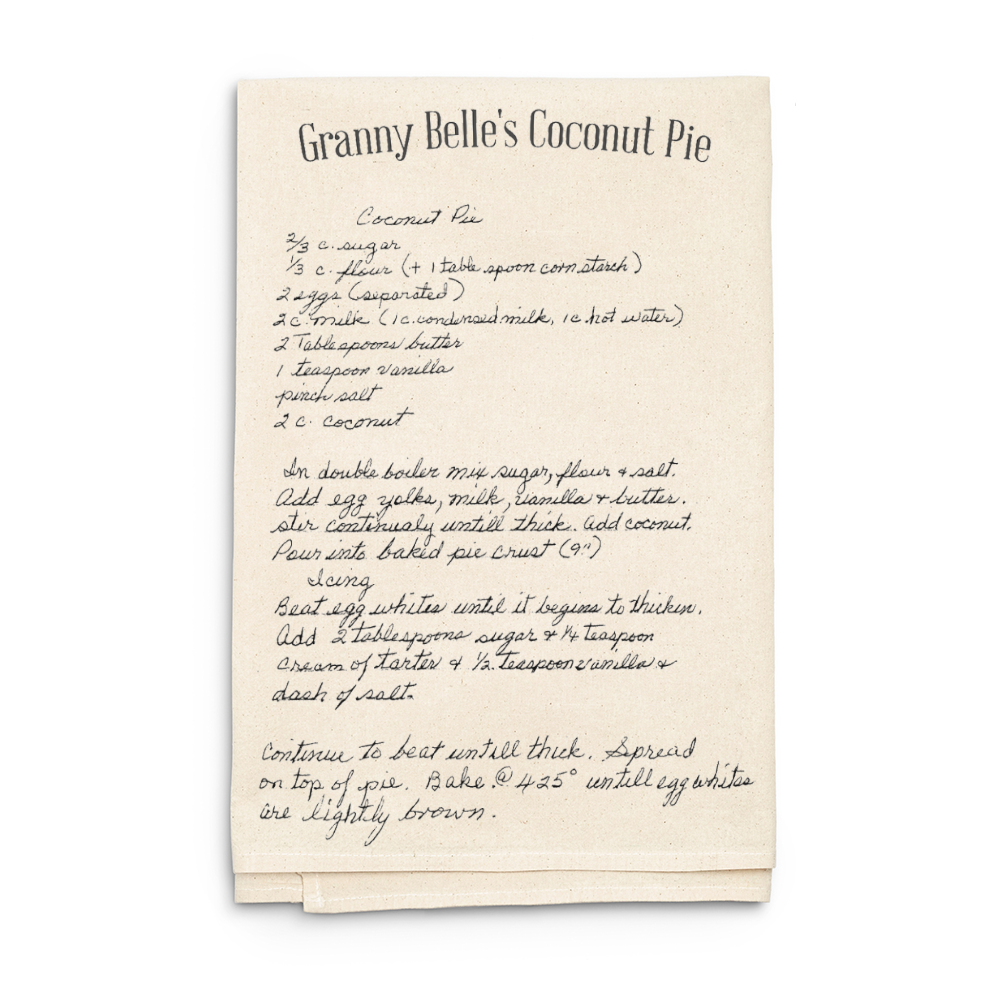 Granny Belle's Coconut Pie
Coconut Pie
2/3 c. sugar
1/3 c. flour (+ 1 table spoon corn starch)
2 eggs (separated)
2 c. milk (1 c. condensed milk, 1 c. hot water)
2 Tablespoons butter
1 teaspoon vanilla
pinch salt
2 c. coconut
In double boiler mix sugar, flour & salt.
Add egg yolks, milk, vanilla & butter.
stir continualy untill thick. Add coconut.
Pour into baked pie crust (9")
Icing
Beat egg whites until it begins to thicken.
Add 2 tablespoons sugar & 1/4 teaspoon
cream of tarter & 1/2 teaspoon vanilla &
dash of salt.
Continue to beat untill thick. Spread
on top of pie. Bake @ 425° untill egg whites
are lightly brown.